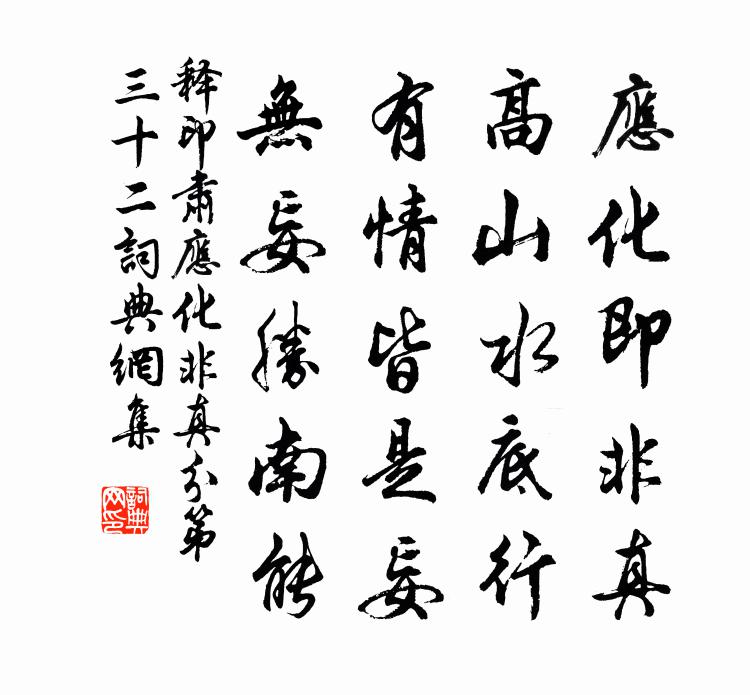 應化即非真
高山水底行
有情皆是妄
無妄勝南能
释印肅應化非真分第
三十二詞典網集
詞典网印